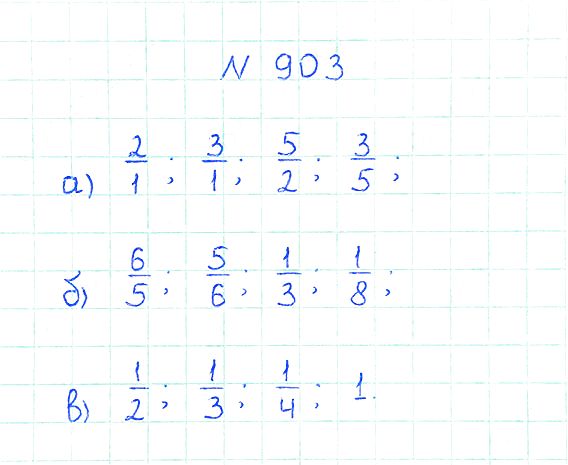 N 903
а) 2/1; 3/1; 5/2; 3/5;
б) 6/5; 5/6; 1/3; 1/8;
в) 1/2; 1/3; 1/4; 1.